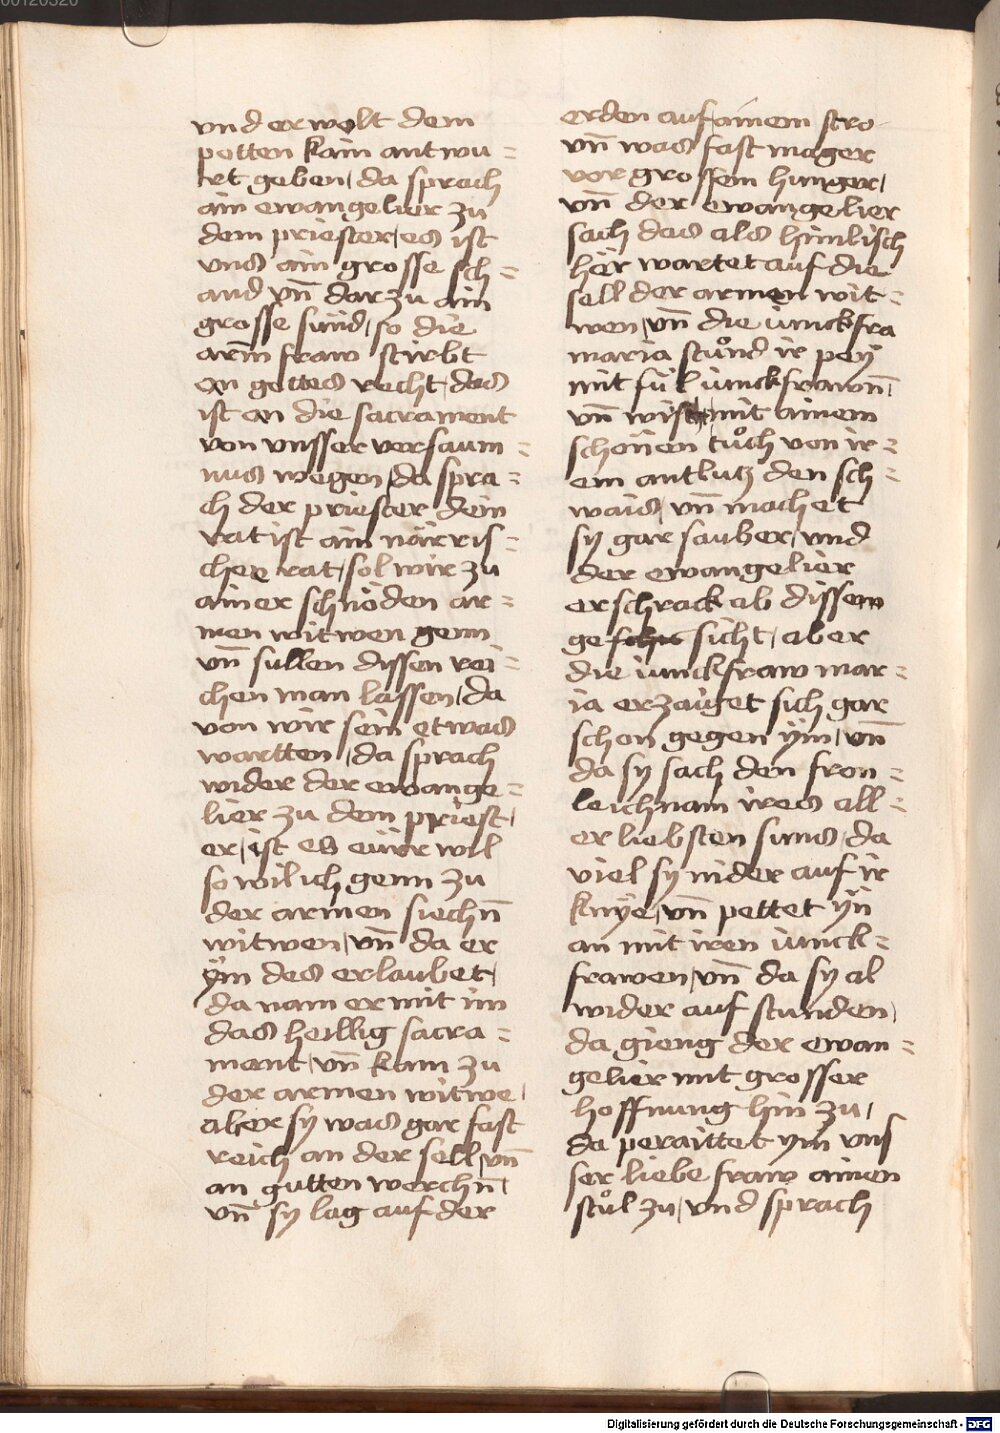 vnd er wolt dem
potten kain antwu =
rt geben / da sprach
ain ewangelier zu
dem priester / es ist
vns ain grosse sch =
and vn̄ dar zu ain
grosse sünd / so die
arm fraw stirbt
on gottes recht / das
ist on die sacrament
von vnsser versaum =
nus wegen / da spra =
ch der priester dein
rat ist ain närris =
cher rat / sol wir zu
ainer schnöden ar =
men witwen genn
vn̄ sullen dyssen rei =
chen man lassen / da
von wir sein etwas
wartten / da sprach
wider der ewange =
lier zu dem priest /
er / ist es eüwr wil
so wil ich genn zu
der armen siechn̄
witwen / vn̄ da er
ÿm des erlaubet /
da nam er mit im
das heillig sacra =
ment / vn̄ kam zu
der armen witwe /
aber sy was gar fast
reich an der sell / vn̄
an gutten werchn̄ /
vn̄ sy lag auf der
erden auf ainem stro
vn̄ was fast mager
vor grossem hunger /
vn̄ der ewangelier
sach das als himlisch
her wartet auf die
sell der armen wit =
wen / vn̄ die iunckfra
maria stůnd ir peÿ
mit fil iunckfrawn̄ /
vn̄ wist mit ainem
schonen tůch von ir =
em antlutz den sch =
wais / vn̄ machet
sy gar sauber / vnd
der ewangelier
erschrack ab dissem
ge sicht / aber
die iunckfraw mar =
ia erzaiget sich gar
schon gegen ÿm / vn̄
da sy sach den fron =
leichnam ires all =
er liebsten suns / da
viel sy nider auf ir
knÿe / vn̄ pettet ÿn
an mit iren iunck =
frawen / vn̄ da sy al
wider auf stunden /
da gieng der ewan =
gelier mit grosser
hoffnung hin zu /
da peraittet ym vns
ser liebe fraw ainen
stůl zu / vnd sprach
Digitalisierung gefördert durch die Deutsche Forschungsgemeinschaft - DFG